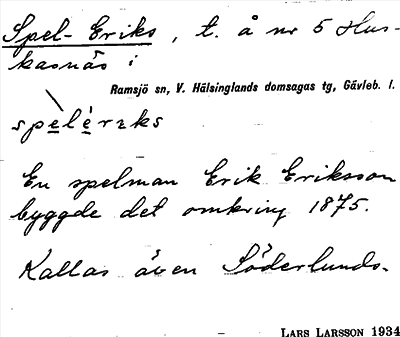 Spel-Eriks, t. å nr 5 Hus-
kasnäs i
Ramsjö sn, V. Hälsinglands domsagas tg, Gävleb. l.
spelèrɩks
En spelman Erik Eriksson
byggde det omkring 1875.
Kallas även Söderlunds.
LARS LARSSON 1934